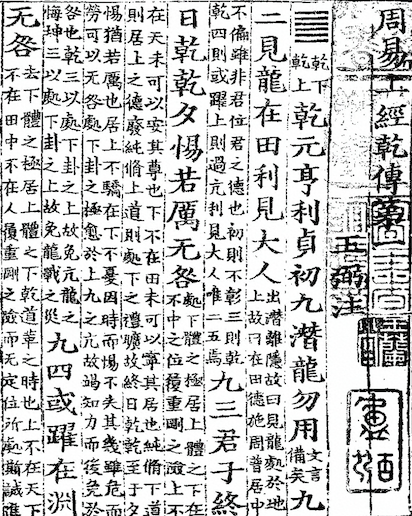 周易上經乾傳第一
王弼注
䷀乾下乾上乾元亨利貞初九潛龍勿用文言備矣九
二見龍在田利見大人出潛離隱故曰見龍處於地上故曰在田德施周普居中
不偏雖非君位君之德也初則不彰三則乾乾四則或躍上則過亢利見大人唯二五焉九三君子終
日乾乾夕惕若厲无咎處下體之極居上體之下在不中之位履重剛之險上不
在天未可以安其尊也下不在田未可以寧其居也純脩下道則居上之德廢純脩上道則處下之禮曠故終日乾乾至于夕
惕猶若厲也居上不驕在下不憂因時而惕不失其幾雖危而勞可以无咎處下卦之極愈於上九之亢故竭知力而後免於
咎也乾三以處下卦之上故免亢龍之悔坤三以處下卦之上故免龍戰之災九四或躍在淵
无咎去下體之極居上體之下乾道革之時也上不在天下不在田中不在人履重剛之險而无定位所處斯誠進